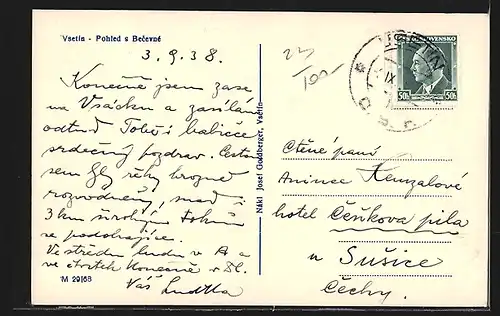 Vsetín - Pohled s Bečevné
3. 9. 38.
Konečně jsem zase
na Vsácku a zasílám
odtud Tobě i babičce
srdečný pozdrav. Cestou
sem byly řeky hrozně
rozvodněny, mad i
3 km širokým tokům
se podobajíce.
Ve středu budu v
ve čtvrtek konečně v
Váš Ludva
M 29168
Nákl. Josef Goldberger, Vsetín
ČESKOSLOVENSKO
50h 50h
VSETÍN
Ctěné paní
Anince Kenzalové
hotel Čeňkova pila
u Sušice
Čechy.